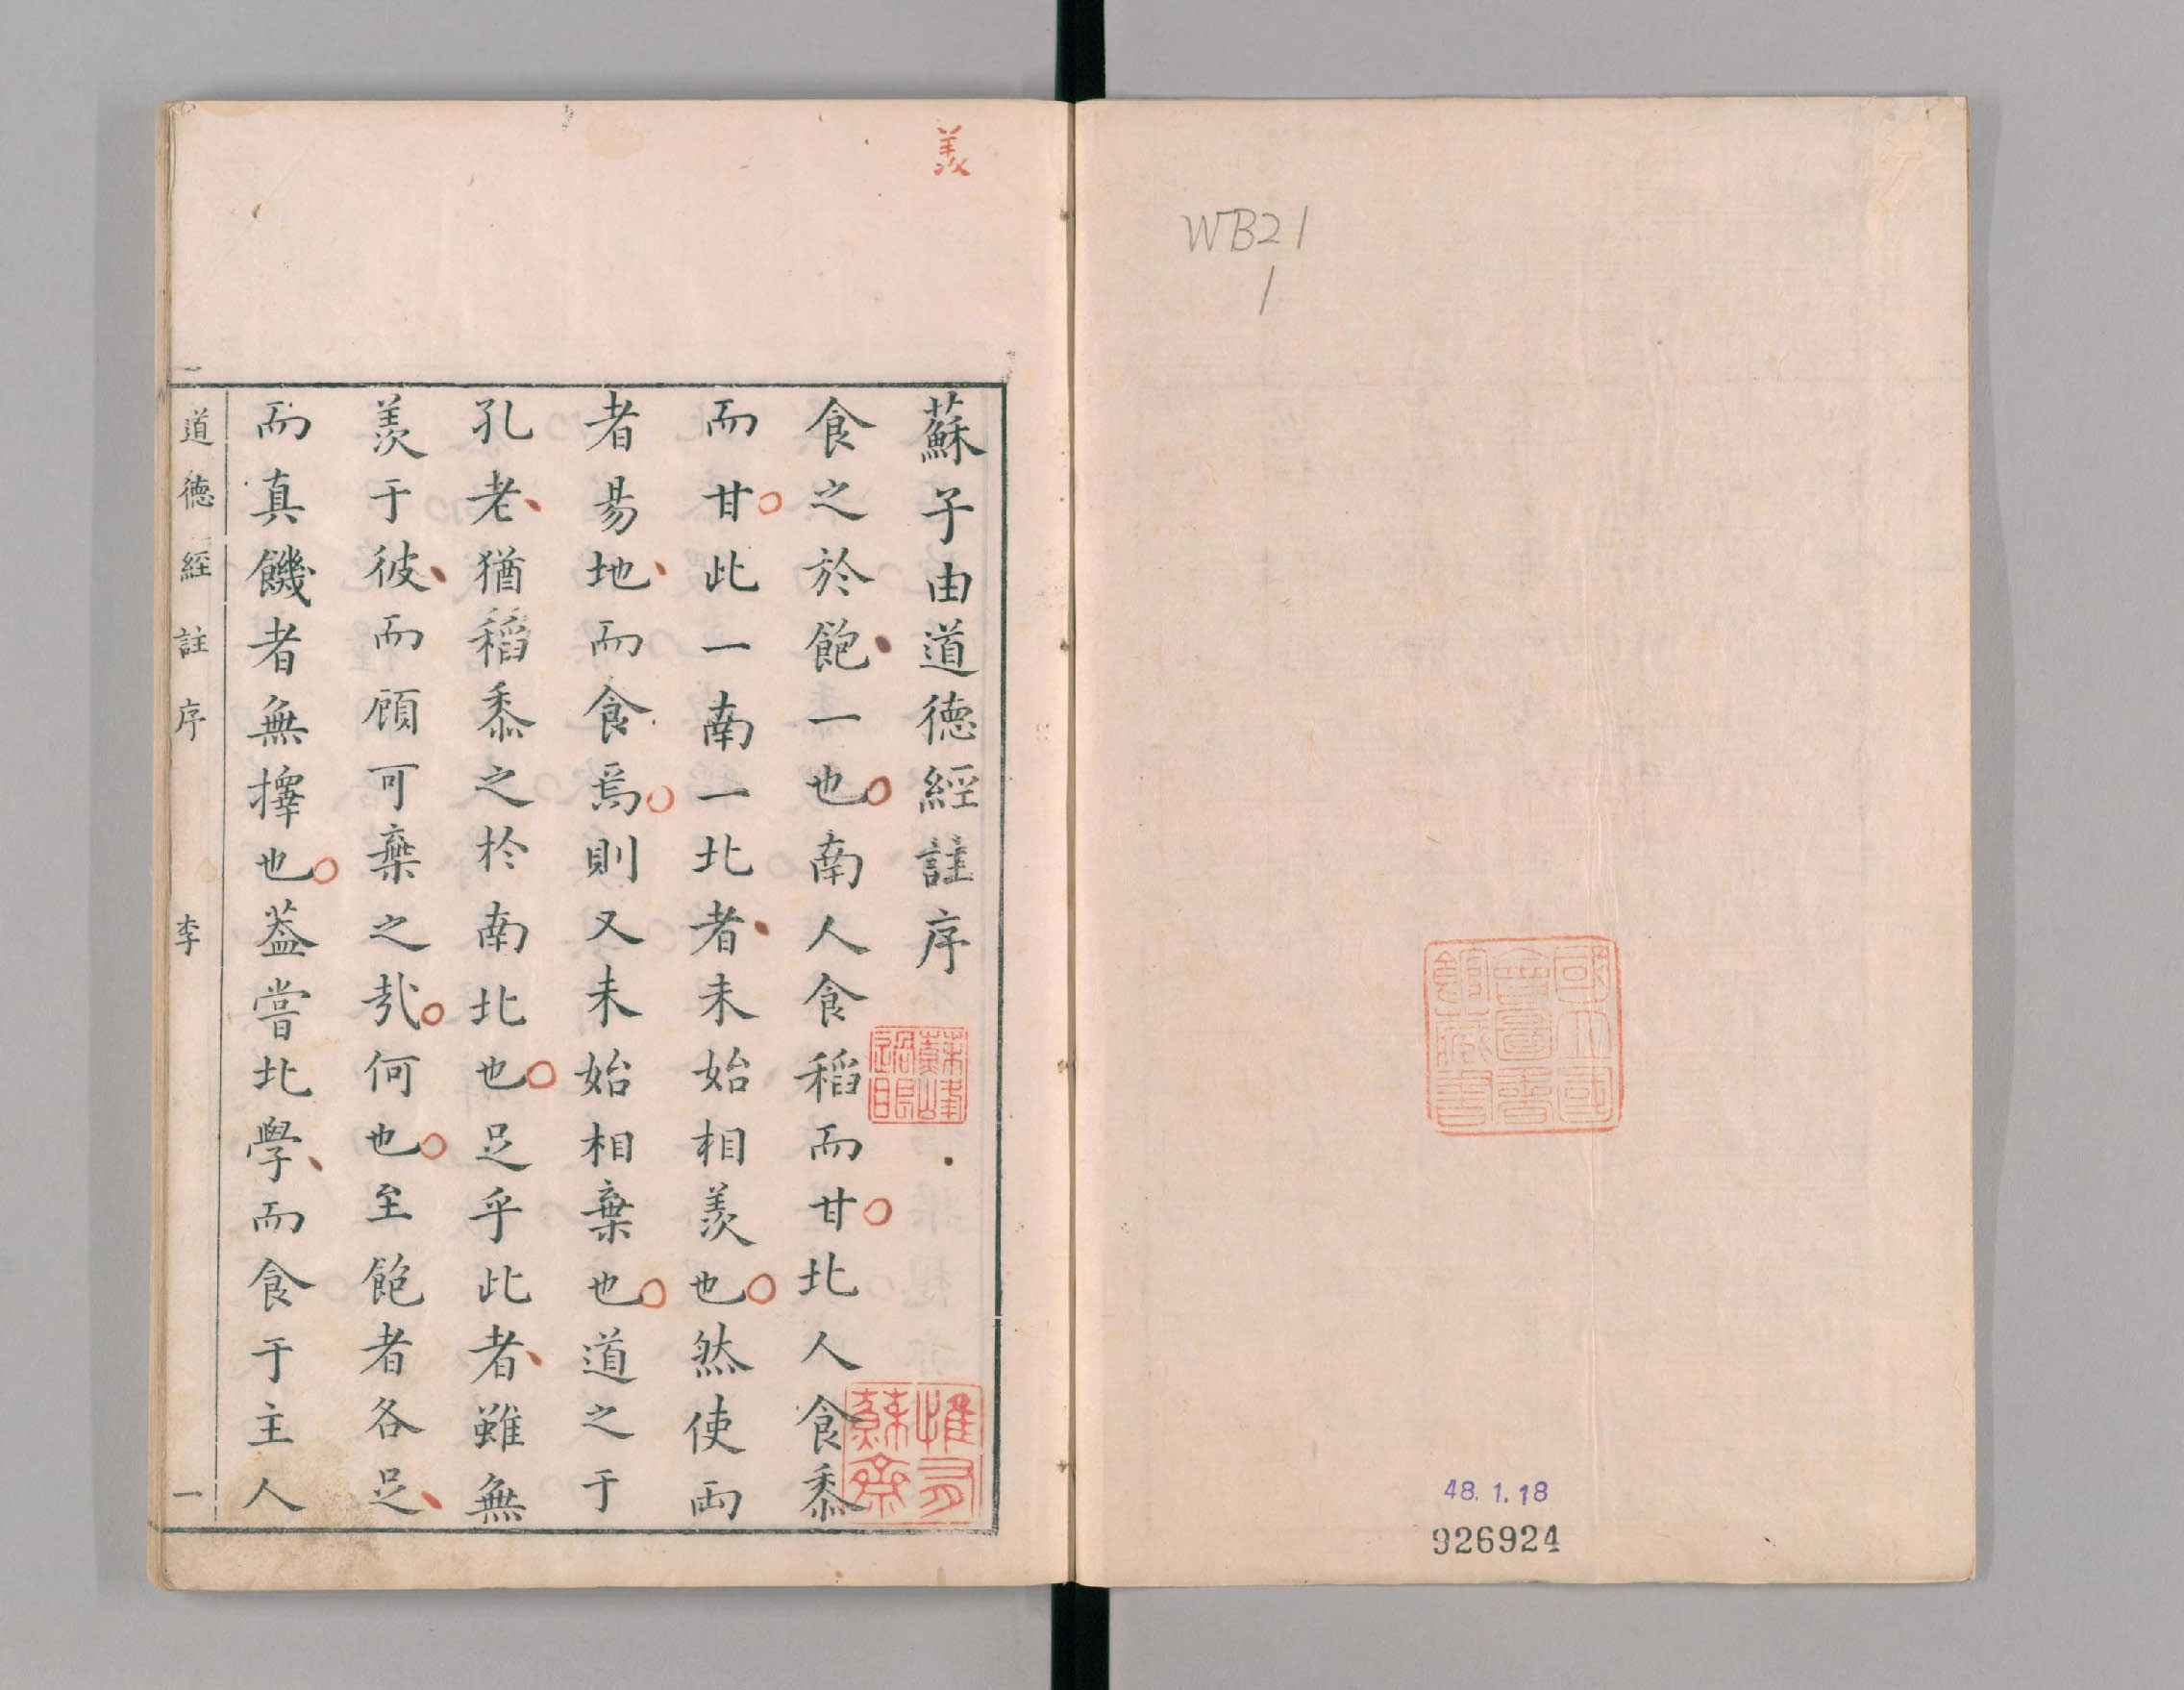 WB21
1
國立國
會圖書
館藏書
48.1.18
926924
羨
蘇子由道德經註序
食之於飽一也南人食稻而甘北人食黍
而甘此一南一北者未始相羨也然使兩
者易地而食焉則又未始相棄也道之于
孔老猶稻黍之於南北也足乎此者雖無
羨于彼而顧可棄之哉何也至飽者各足
而真饑者無擇也蓋嘗北學而食于主人
道德經註序 李 一
蘇峰
惟有
蘇齋